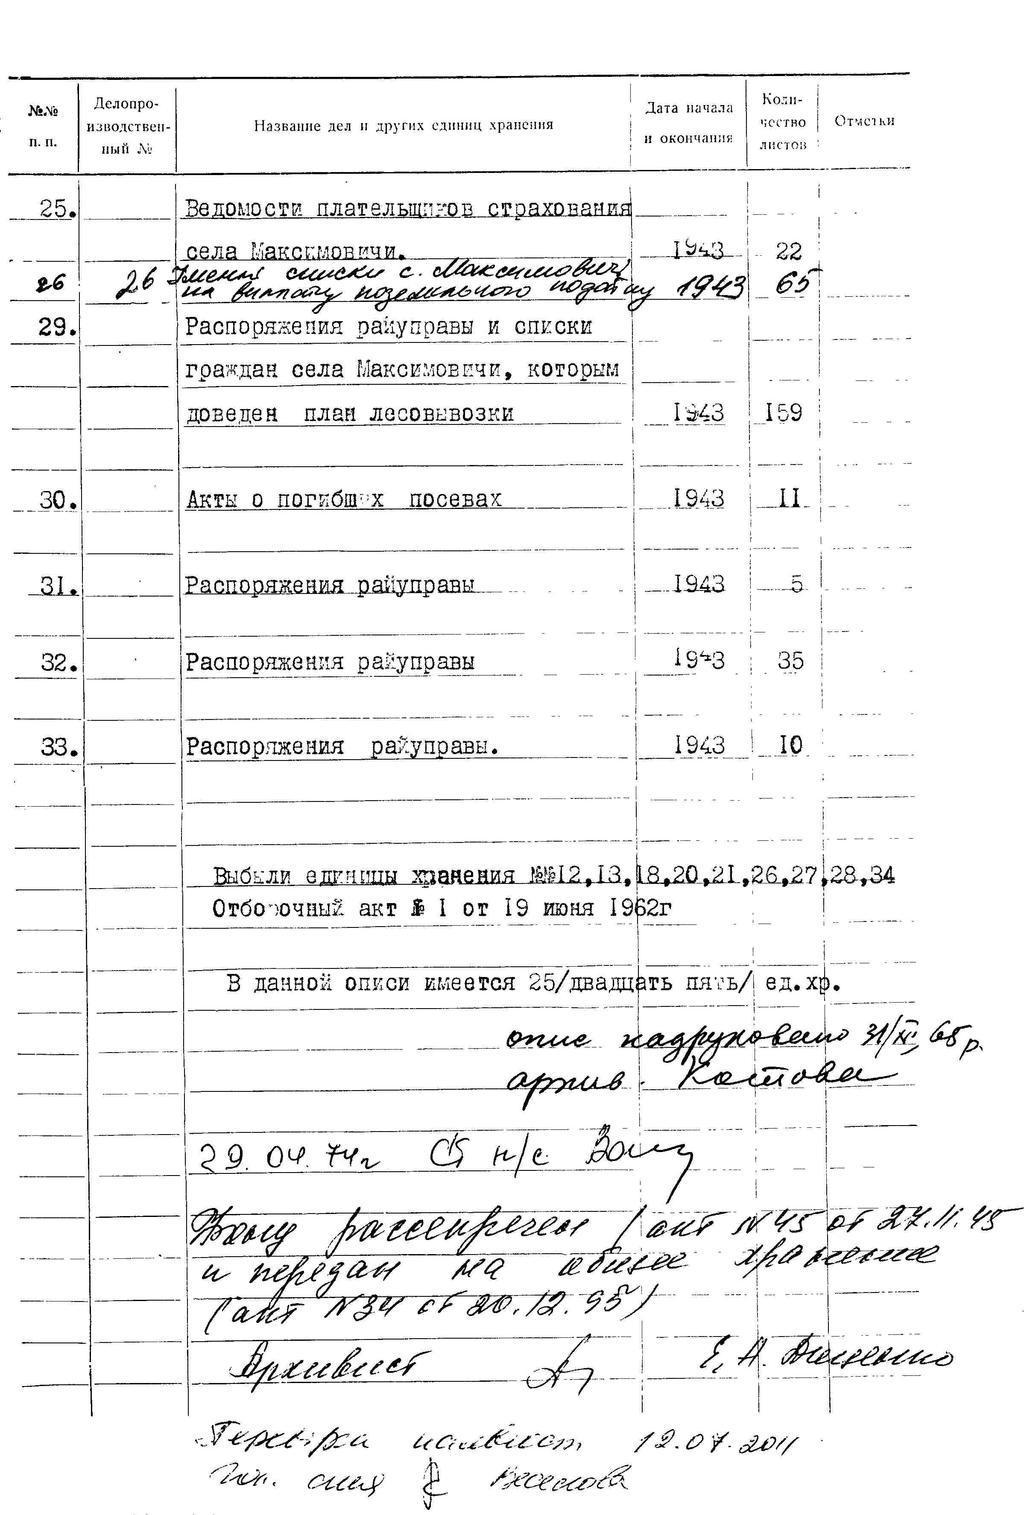 №№ п. п. Делопро-изводствен-ный № Название дел и других единиц хранения Дата начала и окончания Коли-чество листов Отметки
25. Ведомости плательщиков страхования
села Максимовичи. 1943 22
26 26 списки с. Максимовичі
на виплату поземельного податку 1943 65
29. Распоряжения райуправы и списки
граждан села Максимовичи, которым
доведен план лесовывозки 1943 159
30. Акты о погибших посевах 1943 11
31. Распоряжения райуправы 1943 5
32. Распоряжения райуправы 1943 35
33. Распоряжения райуправы. 1943 10
Выбыли единицы хранения №№12,13,18,20,21,26,27,28,34
Отборочный акт № 1 от 19 июня 1962г
В данной описи имеется 25/двадцать пять/ ед.хр.
опис надруковано 31/ 65 р.
архив. Костова
29.04.74г н/с
Фонд рассекречен (акт N45 от 27.11.95
и передан на общее хранение
(акт N34 от 20.12.95)
Архивист Е. А.
наявності 12.07.2011